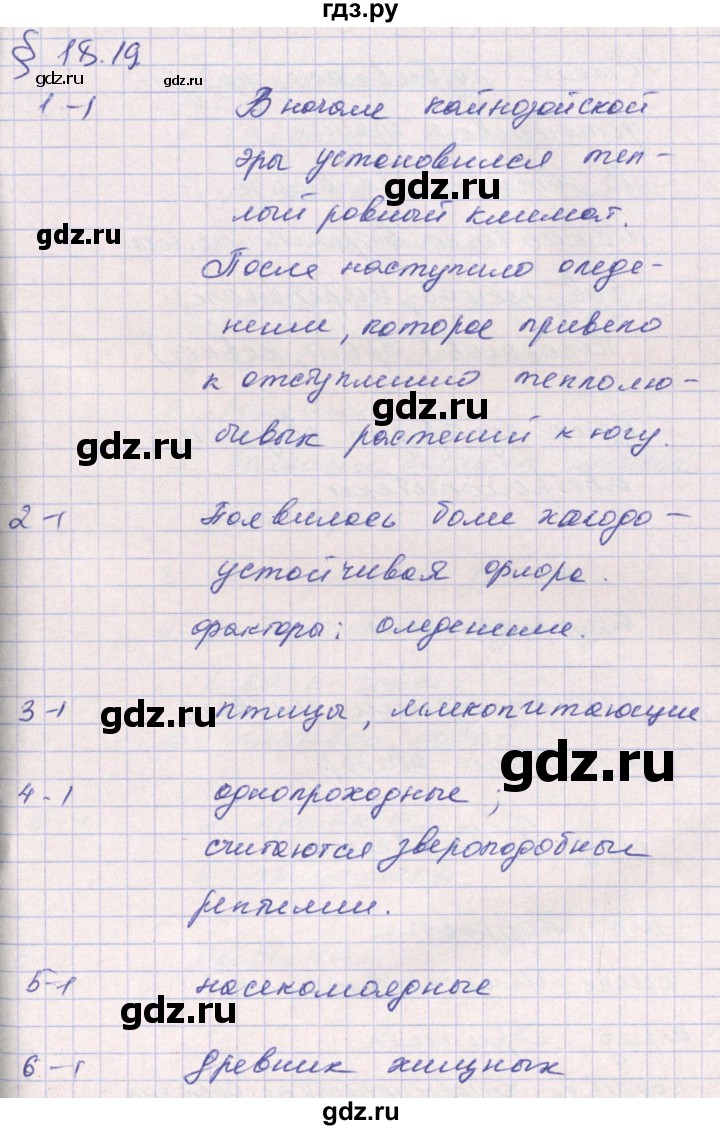 гдз.ру
§ 18.19
1-1 В начале кайнозойской
эры установился теп-
лый ровный климат.
После наступило оледе-
нение, которое привело
к отступлению теплолю-
бивых растений к югу.
2-1 Появилось более холодо-
устойчивая флора.
факторы: оледенение.
3-1 птицы, млекопитающие
4-1 однопроходные;
считаются звероподобные
рептилии.
5-1 насекомоядные
6-1 Древних хищных
gdz.ru
gdz.ru
gdz.ru
gdz.ru
gdz.ru
gdz.ru
gdz.ru
gdz.ru
gdz.ru
gdz.ru
gdz.ru
gdz.ru